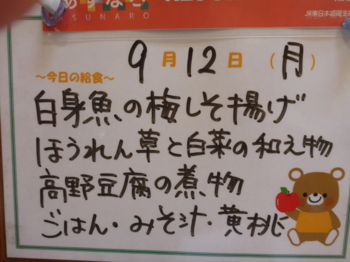 あすなろ
ASUNARO
JR東日本
9月12日(月)
~今日の給食~
白身魚の梅しそ揚げ
ほうれん草と白菜の和え物
高野豆腐の煮物
ごはん・みそ汁・黄桃